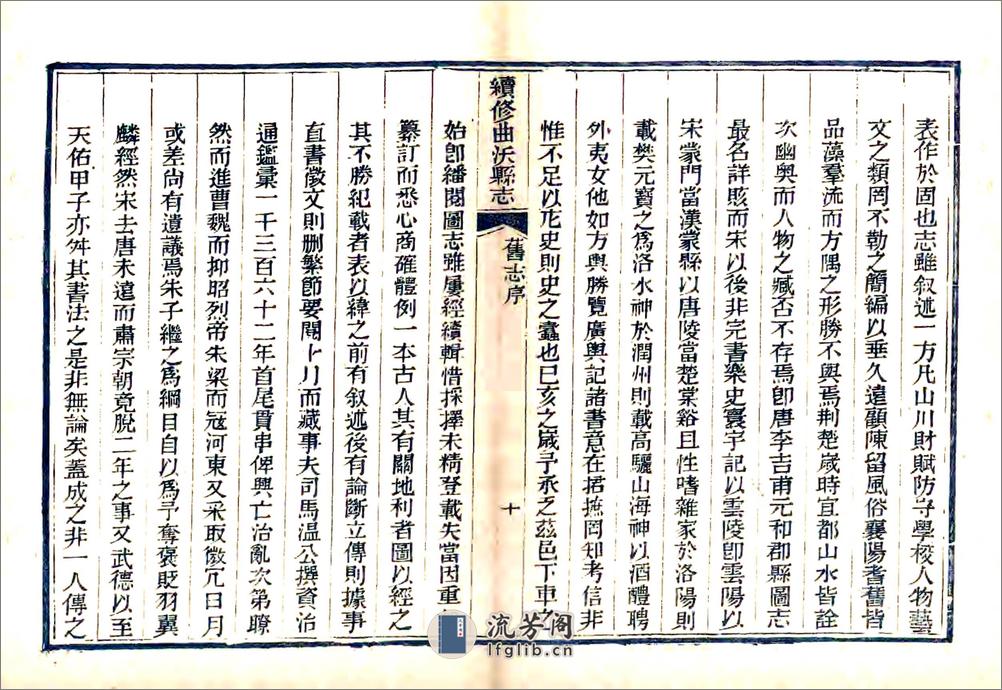 表作於固也志雖叙述一方凡山川財賦防守學校人物藝
文之類罔不勒之簡編以垂久遠顧陳留風俗襄陽耆舊皆
品藻羣流而方隅之形勝不與焉荆楚歲時宜都山水皆詮
次幽奥而人物之臧否不存焉卽唐李吉甫元和郡縣圖志
最名詳賅而宋以後非完書樂史寰宇記以雲陵卽雲陽以
宋蒙門當漢蒙縣以唐陵當楚棠谿且性嗜雜家於洛陽則
載樊元寶之爲洛水神於潤州則載高驪山海神以酒醴聘
外夷女他如方輿勝覽廣輿記諸書意在捃摭罔知考信非
惟不足以庀史則史之蠹也已亥之歲予承乏茲邑下車之
續修曲沃縣志
舊志序
十
始卽繙閱圖志雖屢經續輯惜採擇未精登載失當因重加
纂訂而悉心商確體例一本古人其有關地利者圖以經之
其不勝紀載者表以緯之前有叙述後有論斷立傳則據事
直書徵文則删繁節要閱卜月而蕆事夫司馬温公撰資治
通鑑彙一千三百六十二年首尾貫串俾興亡治亂次第瞭
然而進曹魏而抑昭烈帝朱梁而冦河東又采取徵冗日月
或差尚有遺議焉朱子繼之爲綱目自以爲予奪褒貶羽翼
麟經然宋去唐未遠而肅宗朝竟脫二年之事又武德以至
天佑甲子亦舛其書法之是非無論矣蓋成之非一人傳之
流芳阁
lfglib.cn